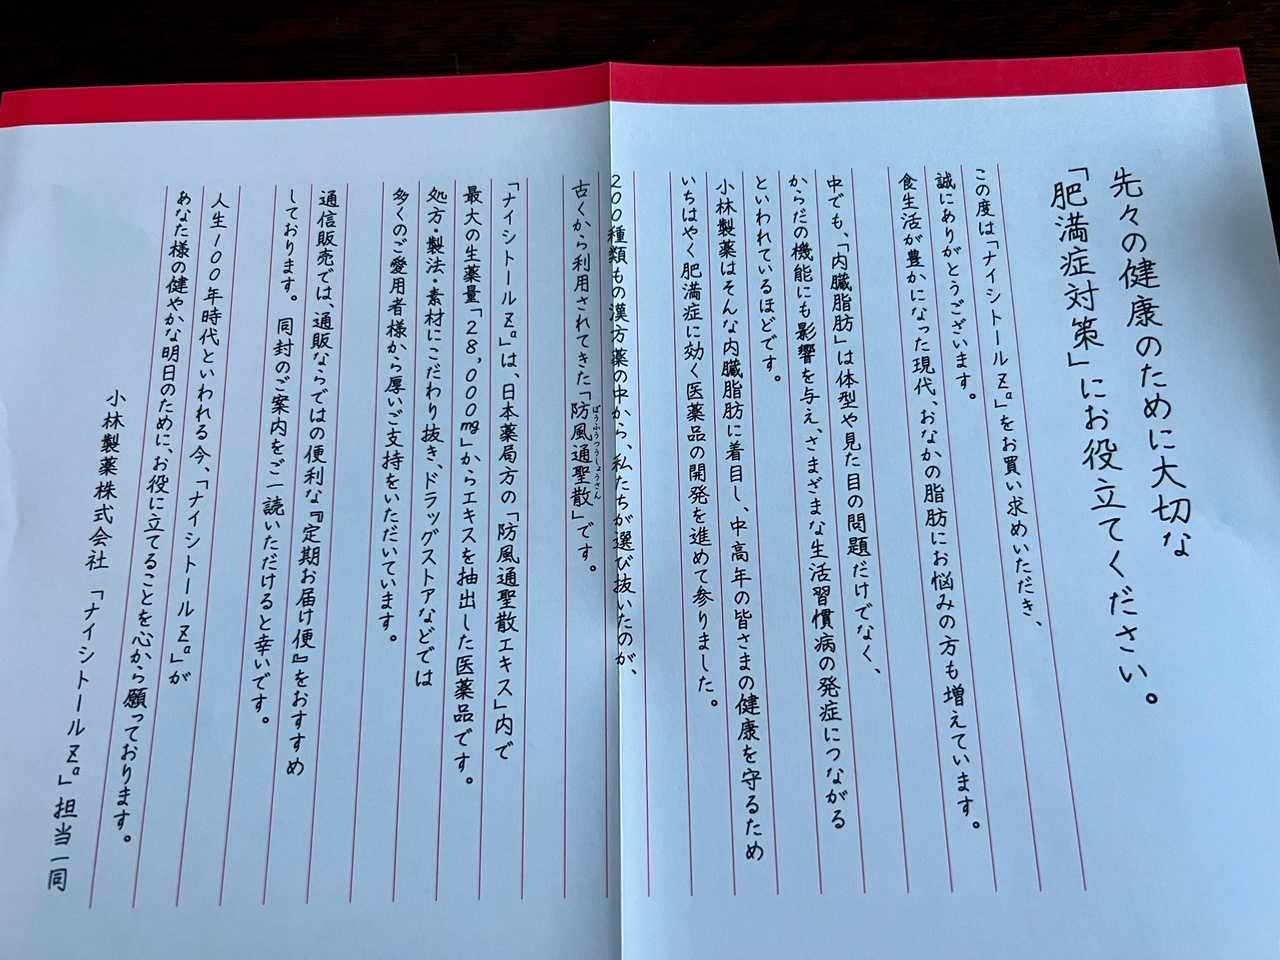 先々の健康のために大切な
「肥満症対策」にお役立てください。
この度は「ナイシトールZa」をお買い求めいただき、
誠にありがとうございます。
食生活が豊かになった現代、おなかの脂肪にお悩みの方も増えています。
中でも、「内臓脂肪」は体型や見た目の問題だけでなく、
からだの機能にも影響を与え、さまざまな生活習慣病の発症につながる
といわれているほどです。
小林製薬はそんな内臓脂肪に着目し、中高年の皆さまの健康を守るため
いちはやく肥満症に効く医薬品の開発を進めて参りました。
200種類もの漢方薬の中から、私たちが選び抜いたのが、
古くから利用されてきた「防風通聖散」です。
ぼうふうつうしょうさん
「ナイシトールZa」は、日本薬局方の「防風通聖散エキス」内で
最大の生薬量「28,000mg」からエキスを抽出した医薬品です。
処方・製法・素材にこだわり抜き、ドラッグストアなどでは
多くのご愛用者様から厚いご支持をいただいています。
通信販売では、通販ならではの便利な『定期お届け便』をおすすめ
しております。同封のご案内をご一読いただけると幸いです。
人生100年時代といわれる今、「ナイシトールZa」が
あなた様の健やかな明日のために、お役に立てることを心から願っております。
小林製薬株式会社 「ナイシトールZa」担当一同